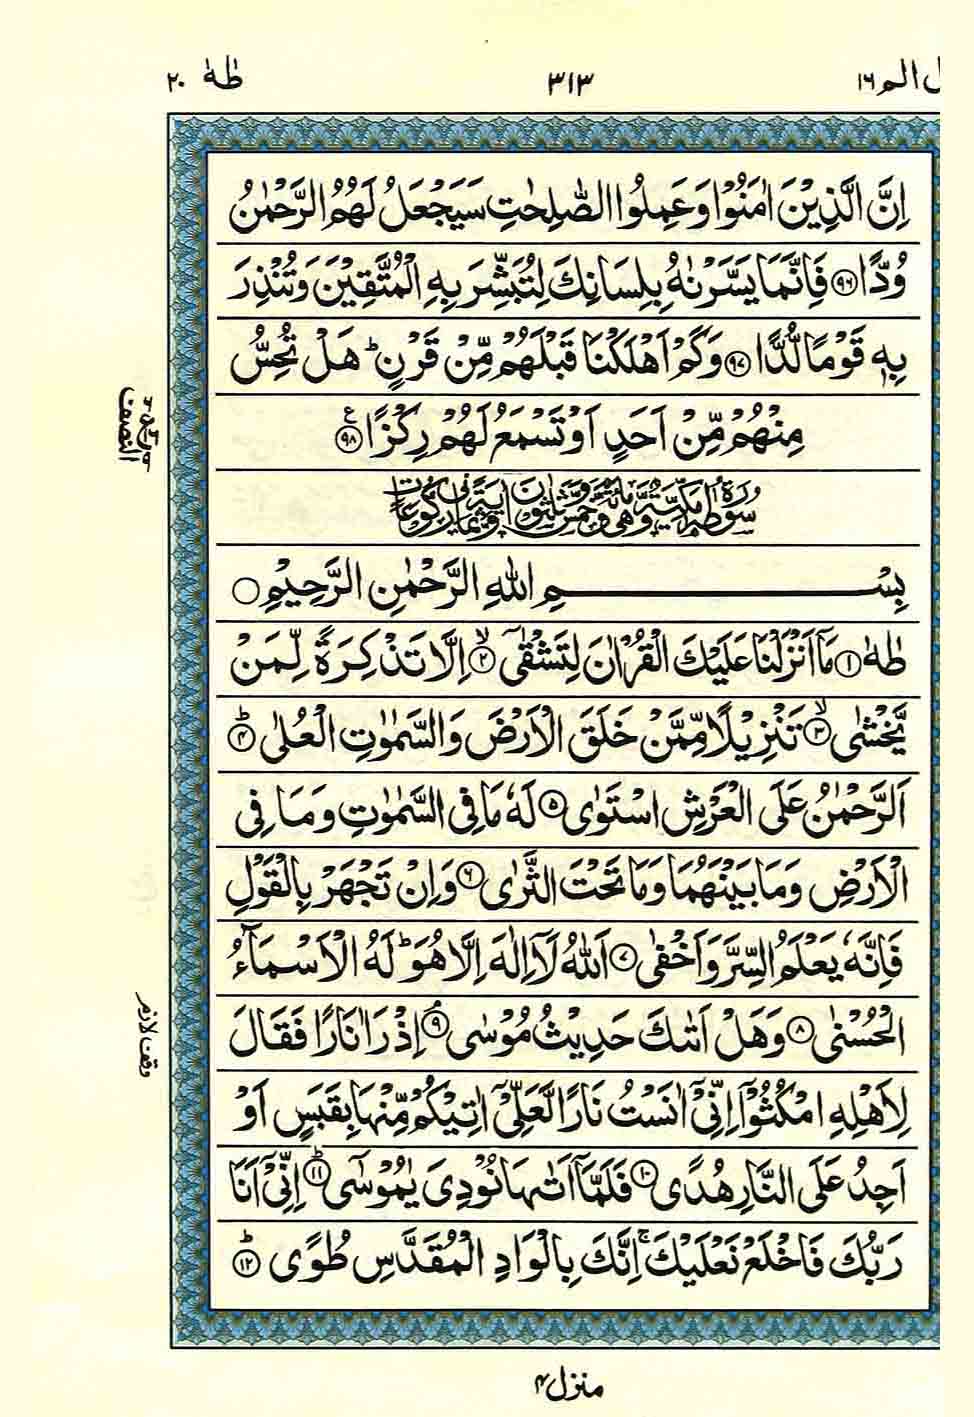 ل الم ١٦
٣١٣
طٰهٰ ٢٠
اِنَّ الَّذِيْنَ اٰمَنُوْا وَعَمِلُوا الصّٰلِحٰتِ سَيَجْعَلُ لَهُمُ الرَّحْمٰنُ
وُدًّا ﴿٩٦﴾ فَاِنَّمَا يَسَّرْنٰهُ بِلِسَانِكَ لِتُبَشِّرَ بِهِ الْمُتَّقِيْنَ وَتُنْذِرَ
بِهٖ قَوْمًا لُّدًّا ﴿٩٧﴾ وَكَمْ اَهْلَكْنَا قَبْلَهُمْ مِّنْ قَرْنٍ ؕ هَلْ تُحِسُّ
مِنْهُمْ مِّنْ اَحَدٍ اَوْ تَسْمَعُ لَهُمْ رِكْزًا ﴿٩٨﴾ ع
سُوْرَةُ طٰهٰ مَكِّيَّةٌ وَّهِيَ مِائَةٌ وَّخَمْسٌ وَّثَلٰثُوْنَ اٰيَةً وَّثَمَانِيْ رُكُوْعَاتٍ
بِسْمِ اللّٰهِ الرَّحْمٰنِ الرَّحِيْمِ ○
طٰهٰ ﴿١﴾ مَآ اَنْزَلْنَا عَلَيْكَ الْقُرْاٰنَ لِتَشْقٰٓى ﴿٢﴾ ۙ اِلَّا تَذْكِرَةً لِّمَنْ
يَّخْشٰى ﴿٣﴾ ۙ تَنْزِيْلًا مِّمَّنْ خَلَقَ الْاَرْضَ وَالسَّمٰوٰتِ الْعُلٰى ﴿٤﴾ ؕ
اَلرَّحْمٰنُ عَلَى الْعَرْشِ اسْتَوٰى ﴿٥﴾ لَهٗ مَا فِى السَّمٰوٰتِ وَمَا فِى
الْاَرْضِ وَمَا بَيْنَهُمَا وَمَا تَحْتَ الثَّرٰى ﴿٦﴾ وَاِنْ تَجْهَرْ بِالْقَوْلِ
فَاِنَّهٗ يَعْلَمُ السِّرَّ وَاَخْفٰى ﴿٧﴾ اَللّٰهُ لَآ اِلٰهَ اِلَّا هُوَ ؕ لَهُ الْاَسْمَآءُ
الْحُسْنٰى ﴿٨﴾ وَهَلْ اَتٰىكَ حَدِيْثُ مُوْسٰى ﴿٩﴾ ۘ اِذْ رَاٰ نَارًا فَقَالَ
لِاَهْلِهِ امْكُثُوْٓا اِنِّىْٓ اٰنَسْتُ نَارًا لَّعَلِّىْٓ اٰتِيْكُمْ مِّنْهَا بِقَبَسٍ اَوْ
اَجِدُ عَلَى النَّارِ هُدًى ﴿١٠﴾ فَلَمَّآ اَتٰىهَا نُوْدِىَ يٰمُوْسٰٓى ﴿١١﴾ ؕ اِنِّىْٓ اَنَا
رَبُّكَ فَاخْلَعْ نَعْلَيْكَ ۚ اِنَّكَ بِالْوَادِ الْمُقَدَّسِ طُوًى ﴿١٢﴾ ؕ
النصف
وقف لازم
منزل ٤